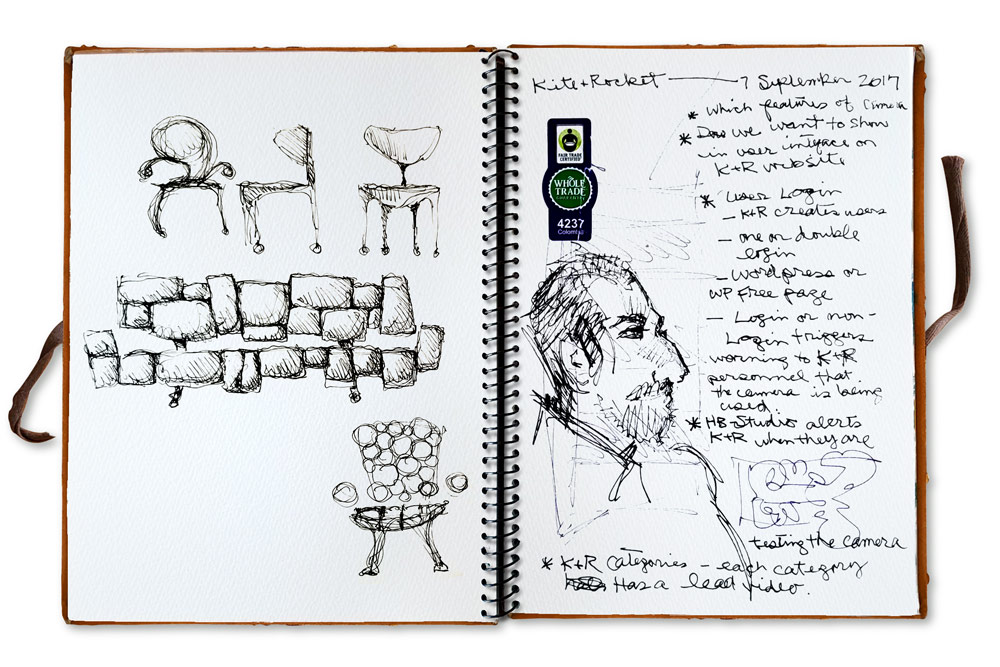 Kite + Rocket — 7 September 2017
* which features of camera
* Do we want to show
in user inteface on
K+R website
FAIR TRADE
CERTIFIED
The
WHOLE
TRADE
GUARANTEE
4237
Colombia
* User Login
- K+R creates users
- one or double
login
- Wordpress or
WP Free page
- Login or non-
Login triggers
warning to K+R
personnel that
the camera is being
used
* HB-Studio alerts
K+R when they are
testing the camera
* K+R Categories - each category
Has a lead video.